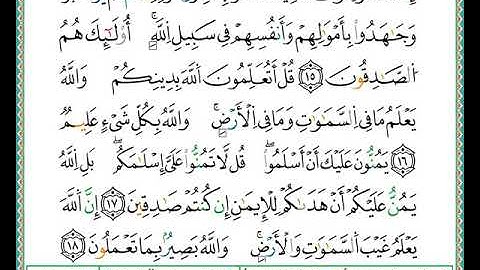 وَجَٰهَدُوا۟ بِأَمْوَٰلِهِمْ وَأَنفُسِهِمْ فِى سَبِيلِ ٱللَّهِ ۚ أُو۟لَٰٓئِكَ هُمُ
ٱلصَّٰدِقُونَ ١٥ قُلْ أَتُعَلِّمُونَ ٱللَّهَ بِدِينِكُمْ وَٱللَّهُ
يَعْلَمُ مَا فِى ٱلسَّمَٰوَٰتِ وَمَا فِى ٱلْأَرْضِ ۚ وَٱللَّهُ بِكُلِّ شَىْءٍ عَلِيمٌ
١٦ يَمُنُّونَ عَلَيْكَ أَنْ أَسْلَمُوا۟ ۖ قُل لَّا تَمُنُّوا۟ عَلَىَّ إِسْلَٰمَكُم ۖ بَلِ ٱللَّهُ
يَمُنُّ عَلَيْكُمْ أَنْ هَدَىٰكُمْ لِلْإِيمَٰنِ إِن كُنتُمْ صَٰدِقِينَ ١٧ إِنَّ ٱللَّهَ
يَعْلَمُ غَيْبَ ٱلسَّمَٰوَٰتِ وَٱلْأَرْضِ ۚ وَٱللَّهُ بَصِيرٌۢ بِمَا تَعْمَلُونَ ١٨